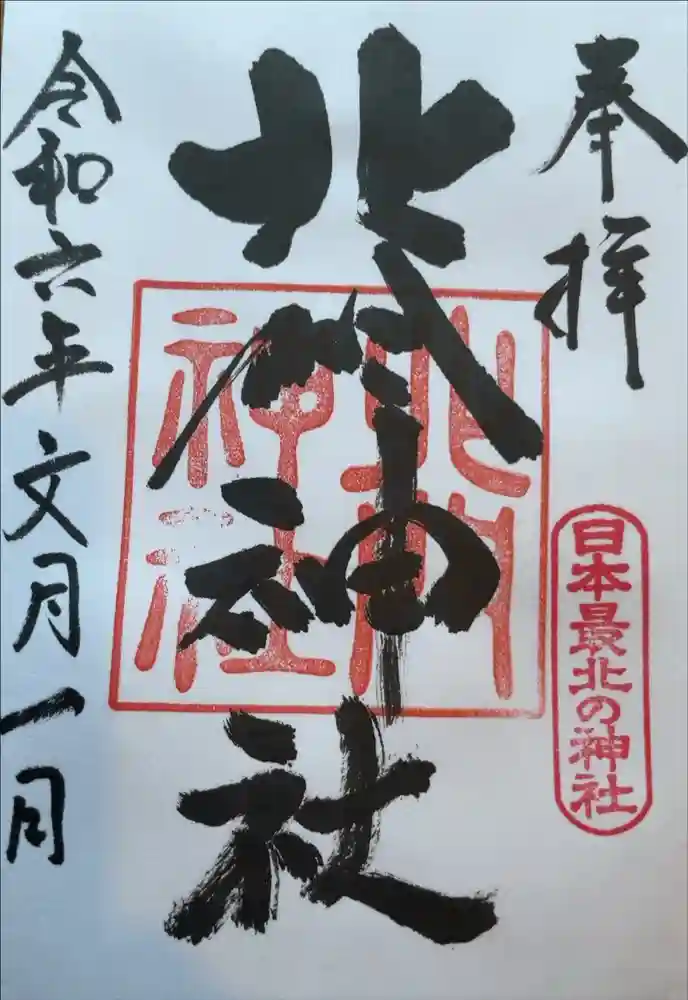 奉拝
北門神社
北門
神社
日本最北の神社
令和六年文月一日